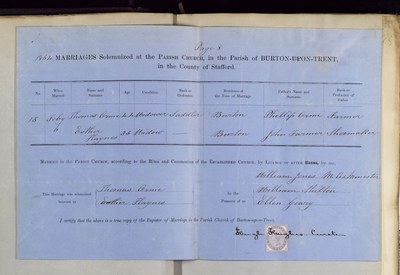 Page 8
MARRIAGES Solemnized at the PARISH CHURCH, in the Parish of BURTON-UPON-TRENT,
in the County of Stafford.
No. When Married Name and Surname Age Condition Rank or Profession Residence at the Time of Marriage Father's Name and Surname Rank or Profession of Father
15 Feby Thomas Orme Widower Saddler Burton Phillip Orme Farmer
6 Esther Haynes 35 Widow Burton John Farmer Shoemaker
MARRIED in the PARISH CHURCH, according to the Rites and Ceremonies of the ESTABLISHED CHURCH, by Licence or after Banns, by me,
William Jones
This Marriage was solemnized between us Thomas Orme
Esther Haynes
In the Presence of us William
Ellen Geary
I certify that the above is a true copy of the Register of Marriages in the Parish Church of Burton-upon-Trent.
Hugh Hughes Curate